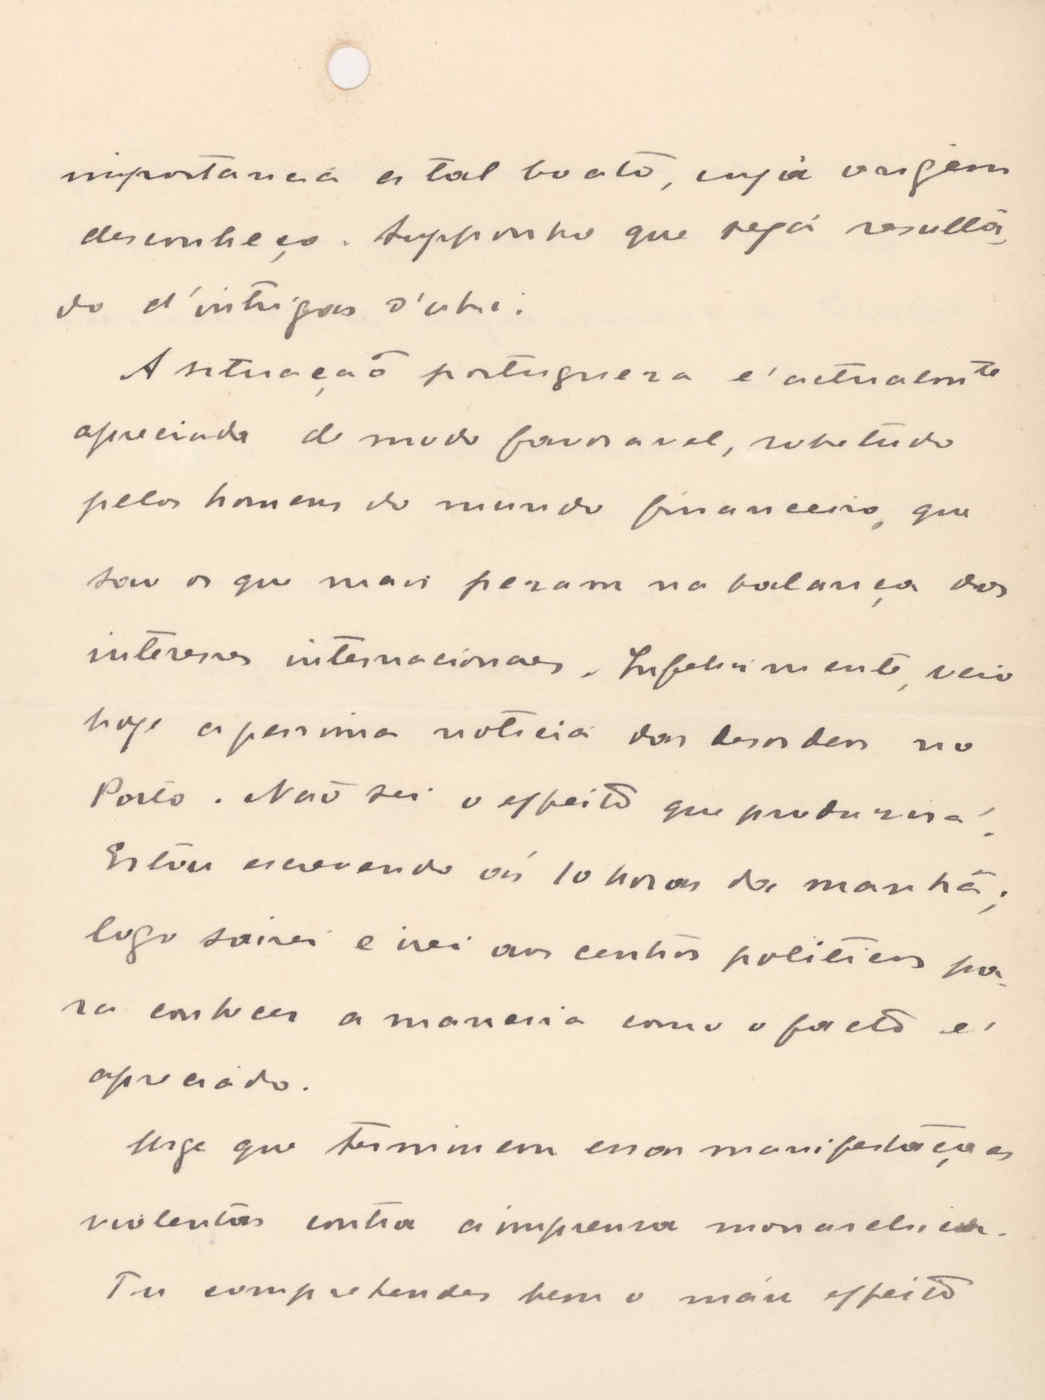 importancia a tal boato, cuja origem
desconheço. Supponho que seja resulta-
do d'intrigas d'ahi.
A situação portugueza é actualmte
apreciada de modo favoravel, sobetudo
pelos homens do mundo financeiro, que
são os que mais pezam na balança dos
interesses internacionaes. Infelizmente, veio
hoje a pessima noticia das desordens no
Porto. Não sei o effeito que produzirá.
Estou escrevendo ás 10 horas da manhã;
logo sairei e irei aos centros politicos pa-
ra conhecer a maneira como o facto é
apreciado.
Urge que terminem essas manifestações
violentas contra a imprensa monarchica.
Tu comprehendes bem o máu effeito